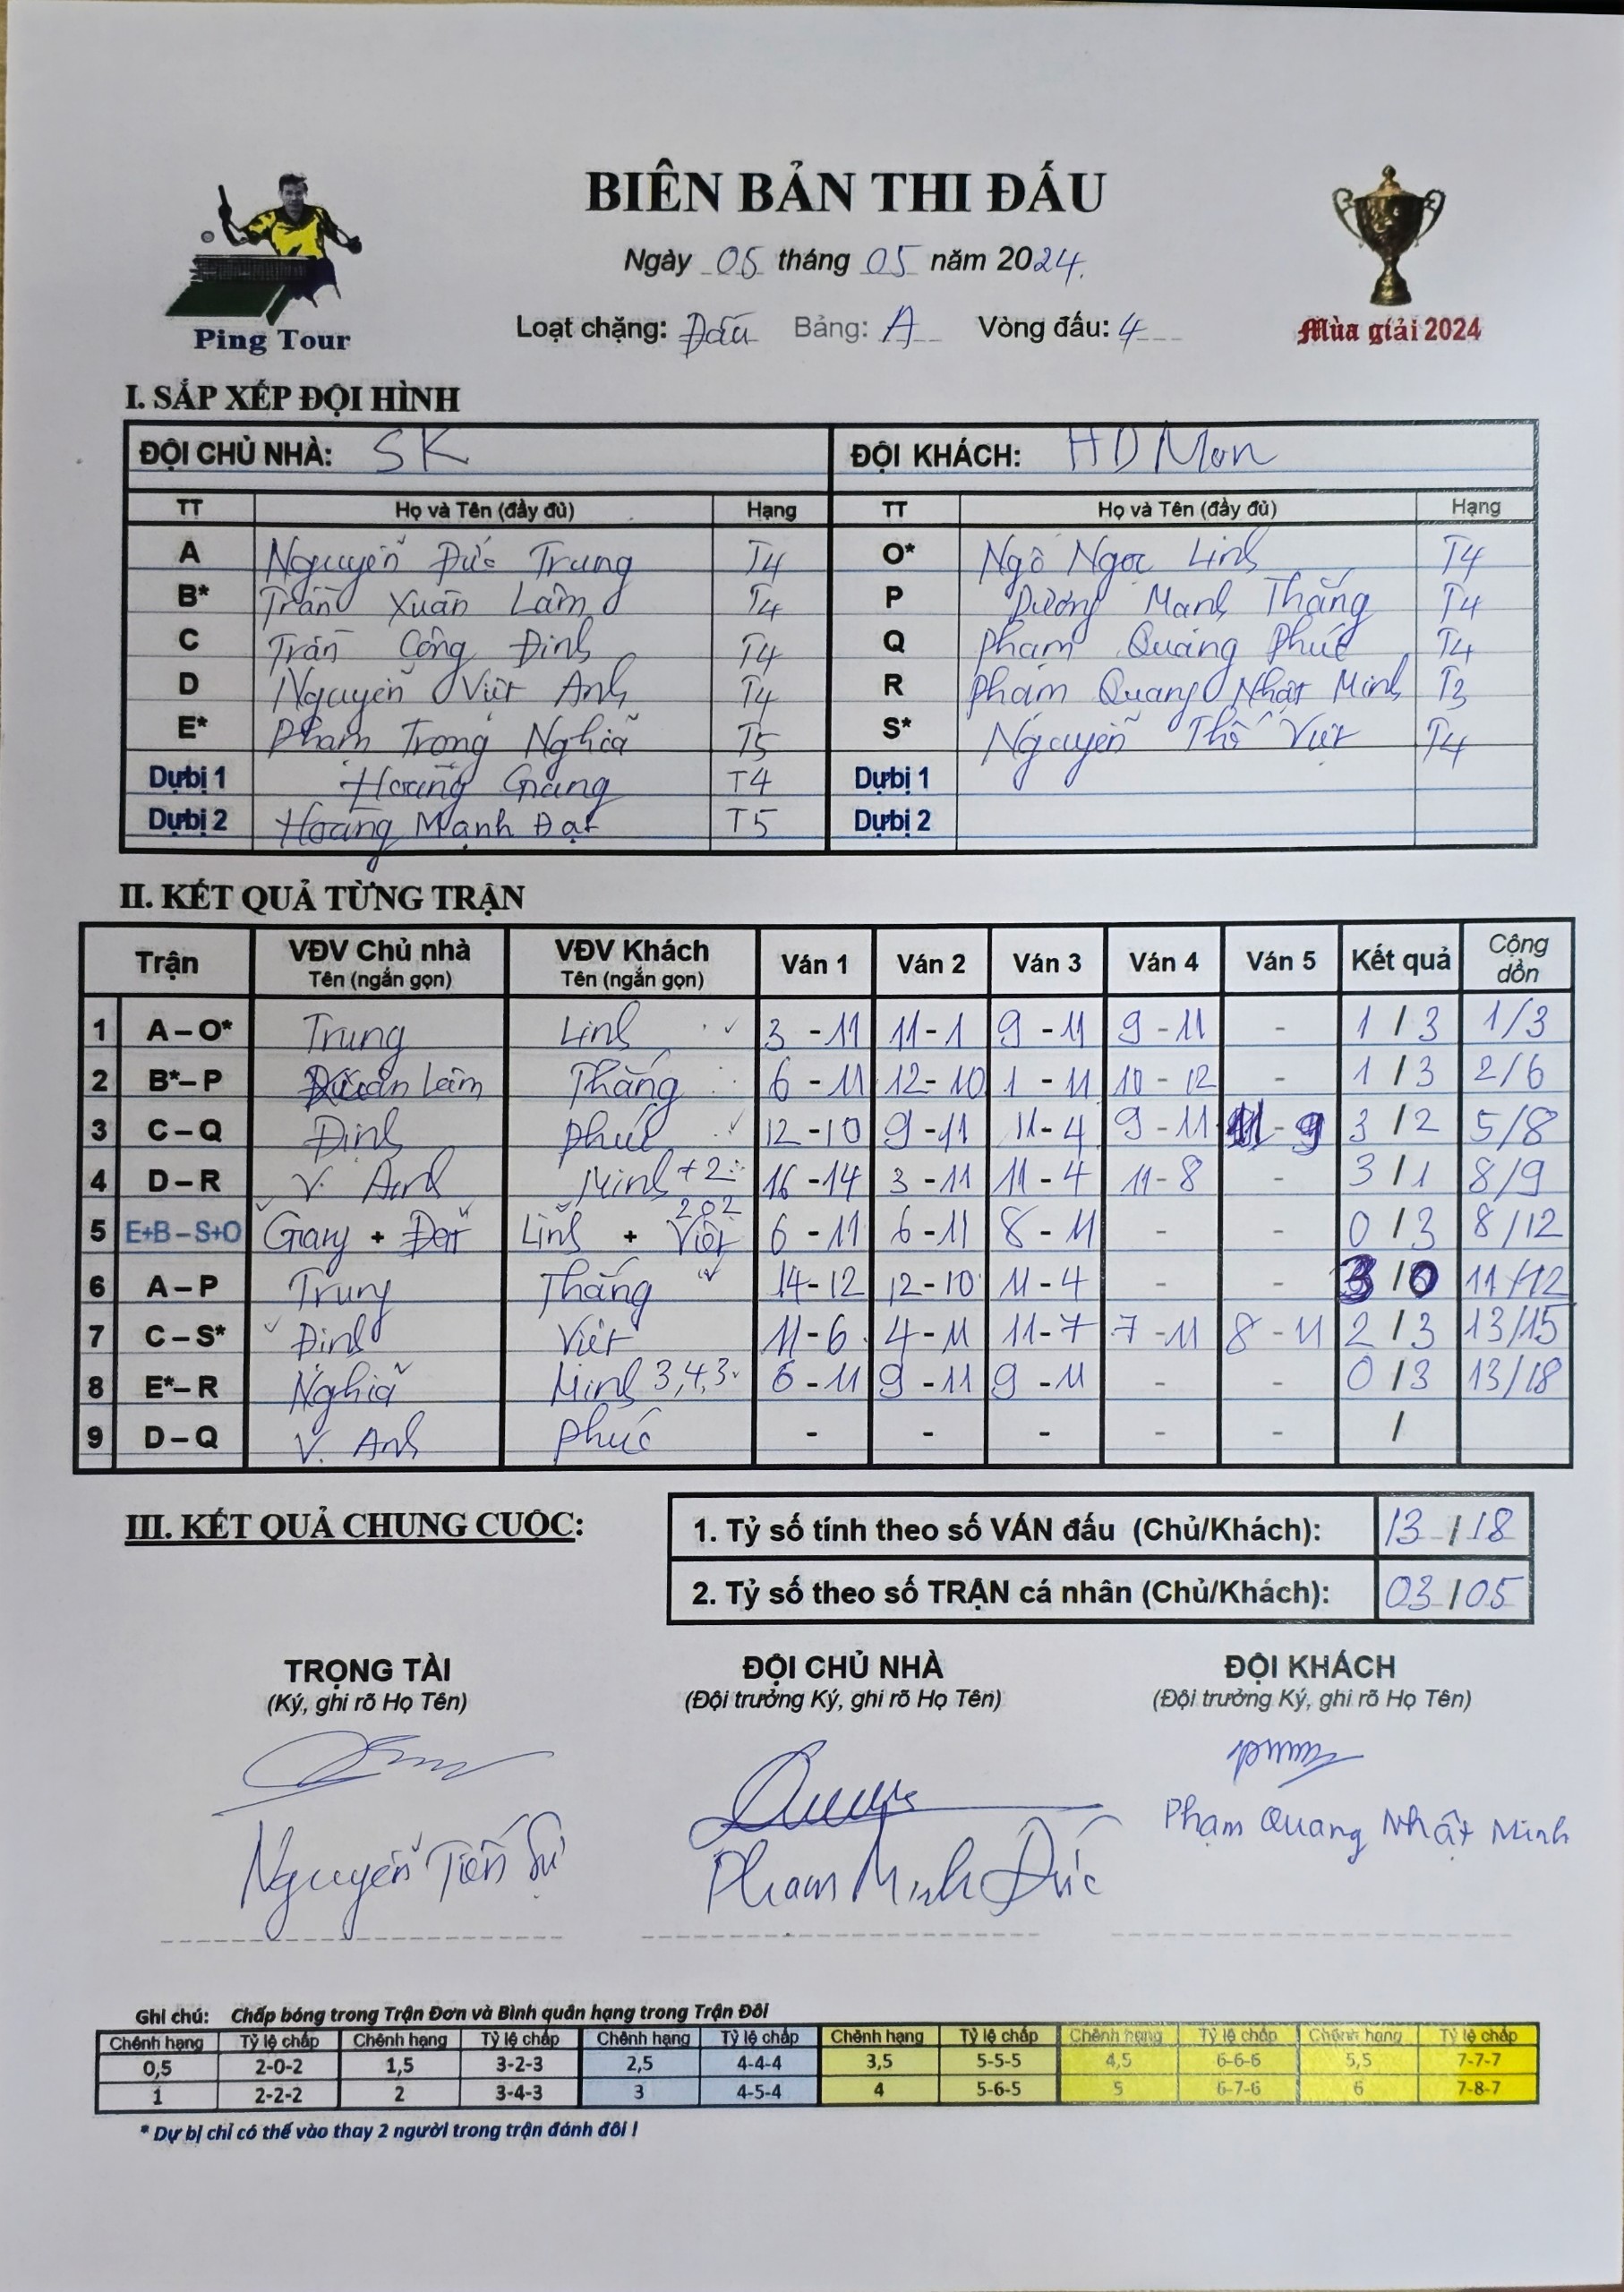 BIÊN BẢN THI ĐẤU
Ngày 05 tháng 05 năm 2024.
Ping Tour
Loạt chặng: Đấu Bảng: A Vòng đấu: 4
Mùa giải 2024
I. SẮP XẾP ĐỘI HÌNH
ĐỘI CHỦ NHÀ: SK ĐỘI KHÁCH: HD Mon
TT Họ và Tên (đầy đủ) Hạng TT Họ và Tên (đầy đủ) Hạng
A Nguyễn Đức Trung T4 O* Ngô Ngọc Linh T4
B* Trần Xuân Lâm T4 P Dương Mạnh Thắng T4
C Trần Công Định T4 Q Phạm Quang Phúc T4
D Nguyễn Việt Anh T4 R Phạm Quang Nhật Minh T3
E* Phạm Trọng Nghĩa T5 S* Nguyễn Thố Việt T4
Dự bị 1 Hoàng Giang T4 Dự bị 1
Dự bị 2 Hoàng Mạnh Đạt T5 Dự bị 2
II. KẾT QUẢ TỪNG TRẬN
Trận VĐV Chủ nhà Tên (ngắn gọn) VĐV Khách Tên (ngắn gọn) Ván 1 Ván 2 Ván 3 Ván 4 Ván 5 Kết quả Cộng dồn
1 A – O* Trung Linh 3 - 11 11 - 1 9 - 11 9 - 11 - 1 / 3 1/3
2 B* – P Xuân Lâm Thắng 6 - 11 12 - 10 1 - 11 10 - 12 - 1 / 3 2/6
3 C – Q Định Phúc 12 - 10 9 - 11 11 - 4 9 - 11 11 - 9 3 / 2 5/8
4 D – R V. Anh Minh +2 16 - 14 3 - 11 11 - 4 11 - 8 - 3 / 1 8/9
5 E+B – S+O Giang + Đạt Linh + Việt 202 6 - 11 6 - 11 8 - 11 - - 0 / 3 8/12
6 A – P Trung Thắng 14 - 12 12 - 10 11 - 4 - - 3 / 0 11/12
7 C – S* Định Việt 11 - 6 4 - 11 11 - 7 7 - 11 8 - 11 2 / 3 13/15
8 E* – R Nghĩa Minh 3,4,3 6 - 11 9 - 11 9 - 11 - - 0 / 3 13/18
9 D – Q V. Anh Phúc - - - - - /
III. KẾT QUẢ CHUNG CUỘC:
1. Tỷ số tính theo số VÁN đấu (Chủ/Khách): 13 / 18
2. Tỷ số theo số TRẬN cá nhân (Chủ/Khách): 03 / 05
TRỌNG TÀI ĐỘI CHỦ NHÀ ĐỘI KHÁCH
(Ký, ghi rõ Họ Tên) (Đội trưởng Ký, ghi rõ Họ Tên) (Đội trưởng Ký, ghi rõ Họ Tên)
Nguyễn Tiến Sự Phạm Minh Đức Phạm Quang Nhật Minh
Ghi chú: Chấp bóng trong Trận Đơn và Bình quân hạng trong Trận Đôi
Chênh hạng Tỷ lệ chấp Chênh hạng Tỷ lệ chấp Chênh hạng Tỷ lệ chấp Chênh hạng Tỷ lệ chấp Chênh hạng Tỷ lệ chấp Chênh hạng Tỷ lệ chấp
0,5 2-0-2 1,5 3-2-3 2,5 4-4-4 3,5 5-5-5 4,5 6-6-6 5,5 7-7-7
1 2-2-2 2 3-4-3 3 4-5-4 4 5-6-5 5 6-7-6 6 7-8-7
* Dự bị chỉ có thể vào thay 2 người trong trận đánh đôi !